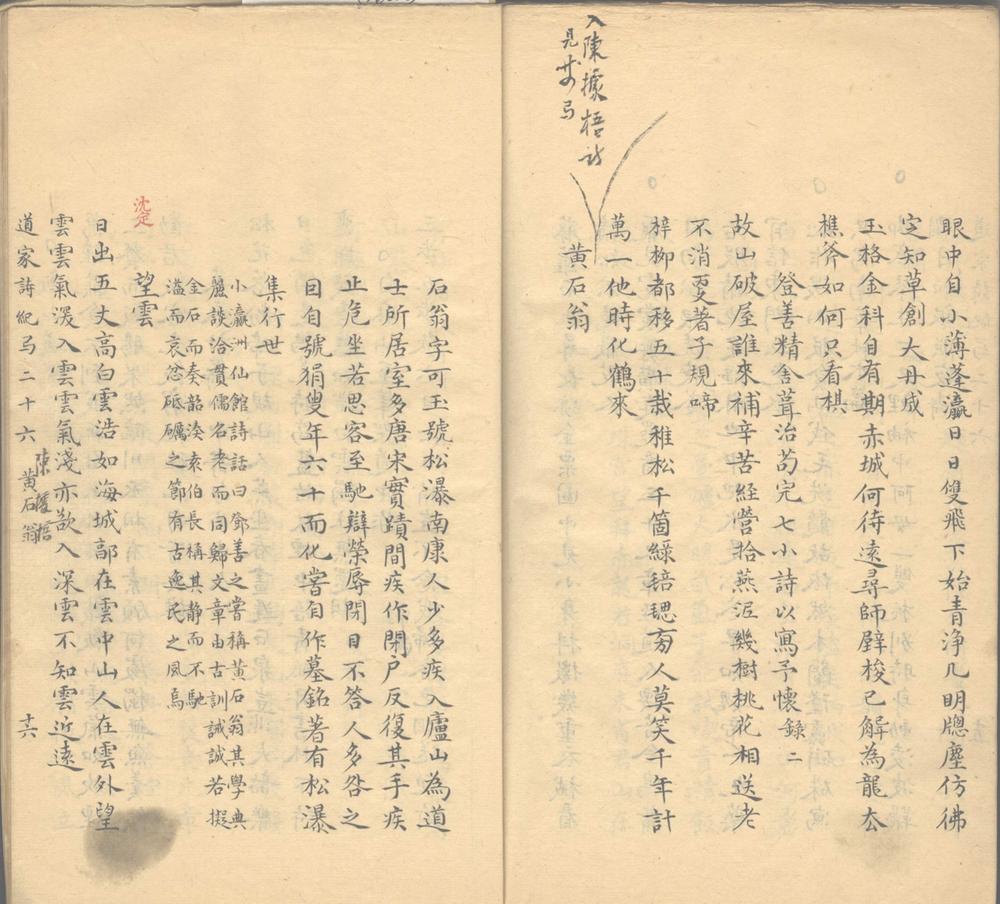 入陳據梧詩
見廿五弓
眼中自小薄蓬瀛日日雙飛下始青淨几明牕塵仿彿
定知草創大丹成
玉格金科自有期赤城何待遠尋師壁梭已解為龍厺
樵斧如何只看棋
登善精舍葺治苟完七小詩以寫予懷 錄二
故山破屋誰來補辛苦経營拾燕泥幾樹桃花相送老
不消更著子規啼
梓柳都移五十栽稚松千箇綠毰毸旁人莫笑千年計
萬一他時化鶴來
黃石翁
石翁字可玉號松瀑南康人少多疾入廬山為道
士所居室多唐宋實蹟間疾作閉户反復其手疾
止危坐若思客至馳辯榮辱閉目不答人多咎之
目自號狷叟年六十而化嘗自作墓銘著有松瀑
集行世
小瀛洲仙館詩話曰鄧善之嘗稱黃石翁其學典
麗談洽貫儒名老而同歸文章由古訓誡誠若掇
金石而奏韶淩袁伯長稱其静而不馳
溢而哀忿砥礪之節有古逸民之風焉
沈定
望雲
日出五丈高白雲浩如海城郭在雲中山人在雲外望
雲雲氣深入雲雲氣淺亦欲入深雲不知雲近遠
道家詩紀弓二十六 陳據梧 黃石翁 十六